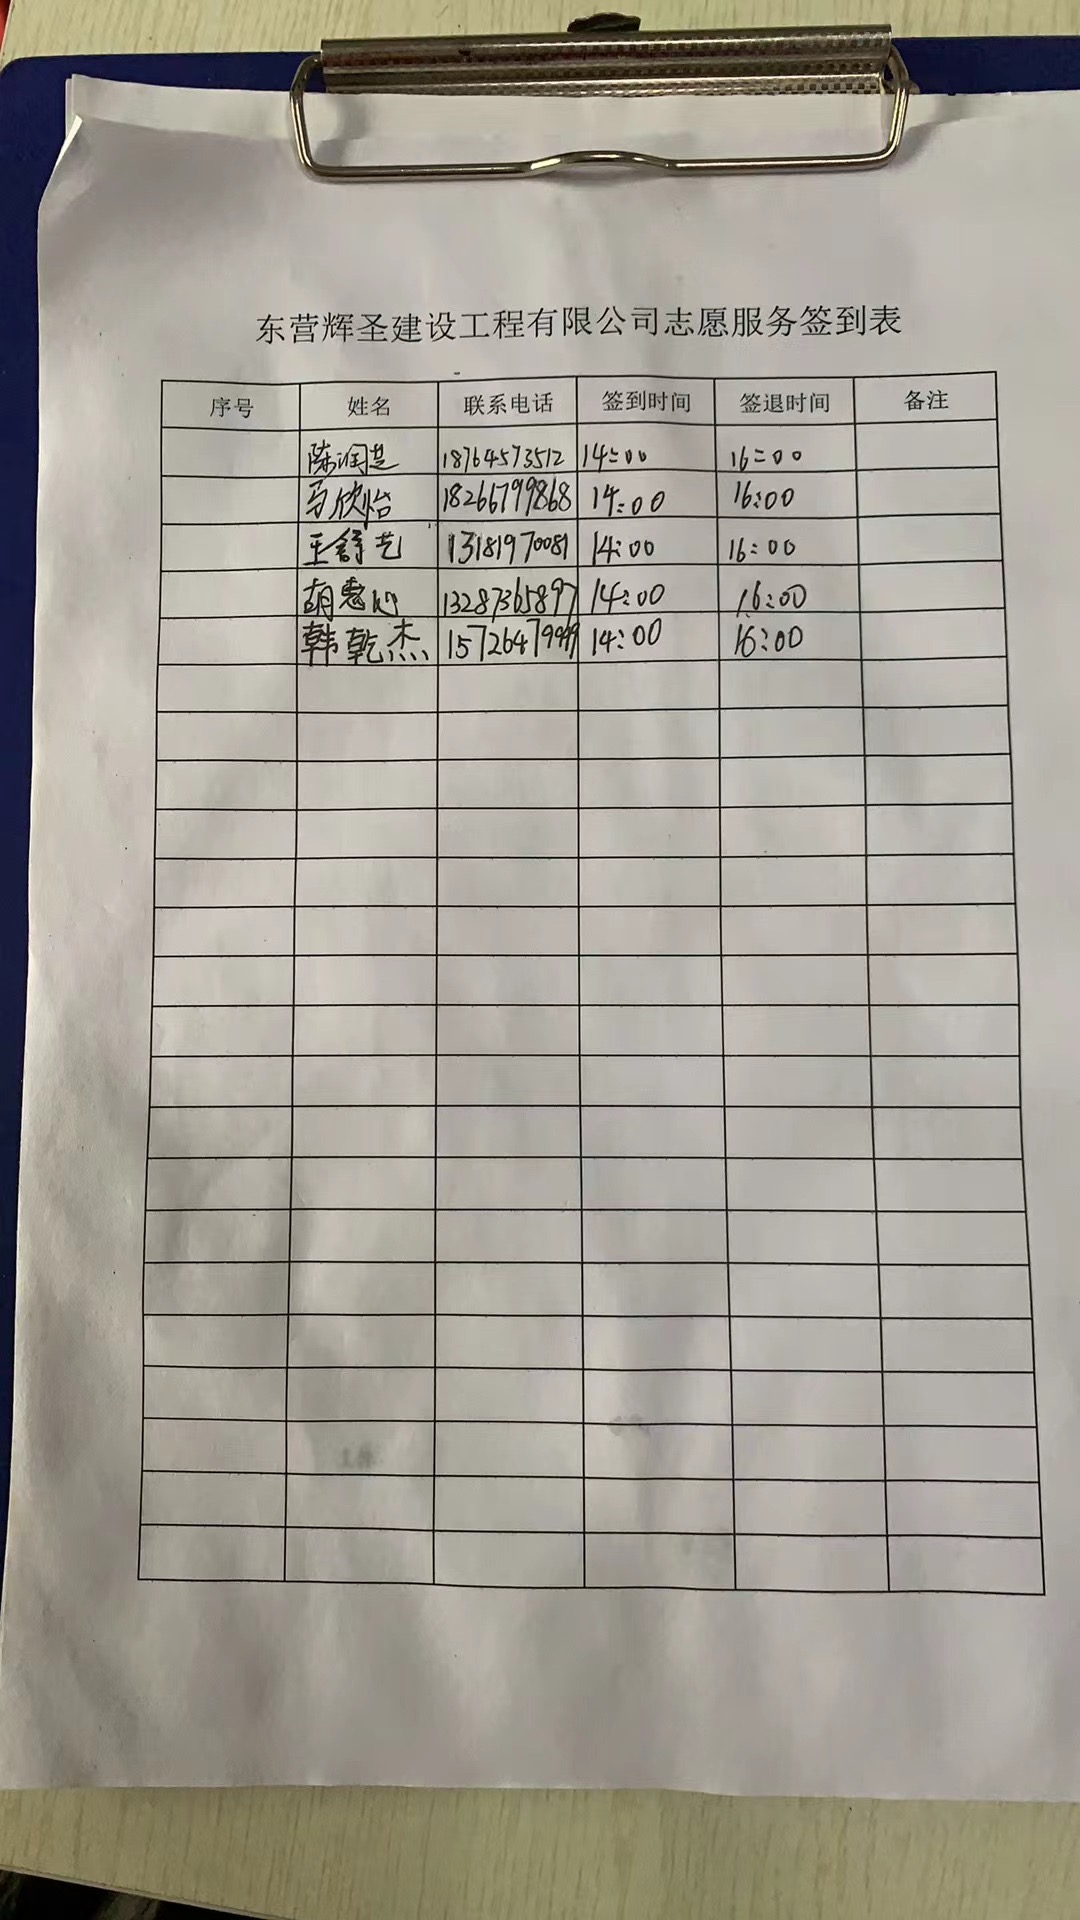 东营辉圣建设工程有限公司志愿服务签到表
序号 姓名 联系电话 签到时间 签退时间 备注
陈润芝 18764573512 14:00 16:00
马欣怡 18266799868 14:00 16:00
王舒艺 13181970081 14:00 16:00
胡惠心 13287365897 14:00 16:00
韩乾杰 14:00 16:00